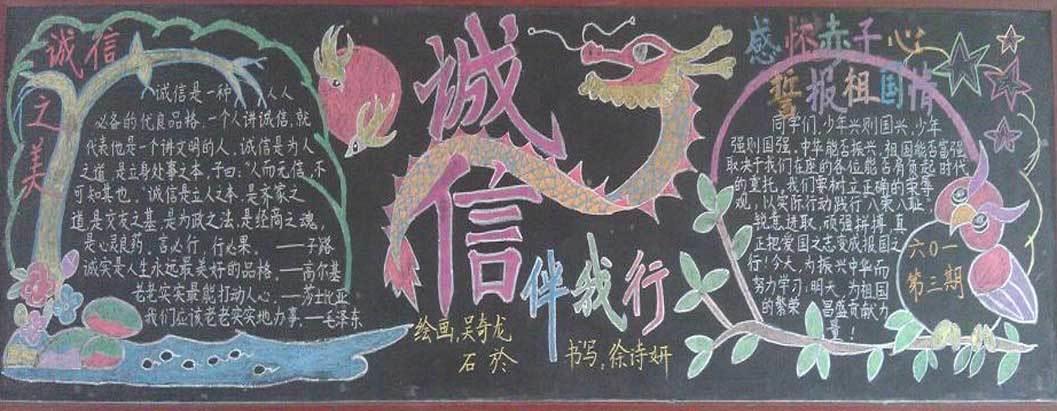 诚信
之美
诚信是一种 人人
必备的优良品格,一个人讲诚信,就
代表他是一个讲文明的人,诚信是为人
之道,是立身处事之本,子曰:"人而无信,不
可知其也。"诚信是立人之本,是齐家之
道,是交友之基,是为政之法,是经商之魂,
是心灵良药。言必行,行必果。——子路
诚实是人生永远最美好的品格。——高尔基
老老实实最能打动人心。——莎士比亚
我们应该老老实实地办事。——毛泽东
诚
信
伴我行
绘画:吴奇龙
石
书写:徐诗妍
感怀赤子心
誓报祖国情
同学们,少年兴则国兴,少年
强则国强。中华能否振兴,祖国能否富强
取决于我们在座的各位能否肩负起时代
的重托,我们要树立正确的荣辱
观,以实际行动践行八荣八耻
锐意进取,顽强拼搏,真
正把爱国之志变成报国之
行!今天,为振兴中华而
努力学习;明天,为祖国
的繁荣 昌盛贡献力
量!
六〇一
第三期